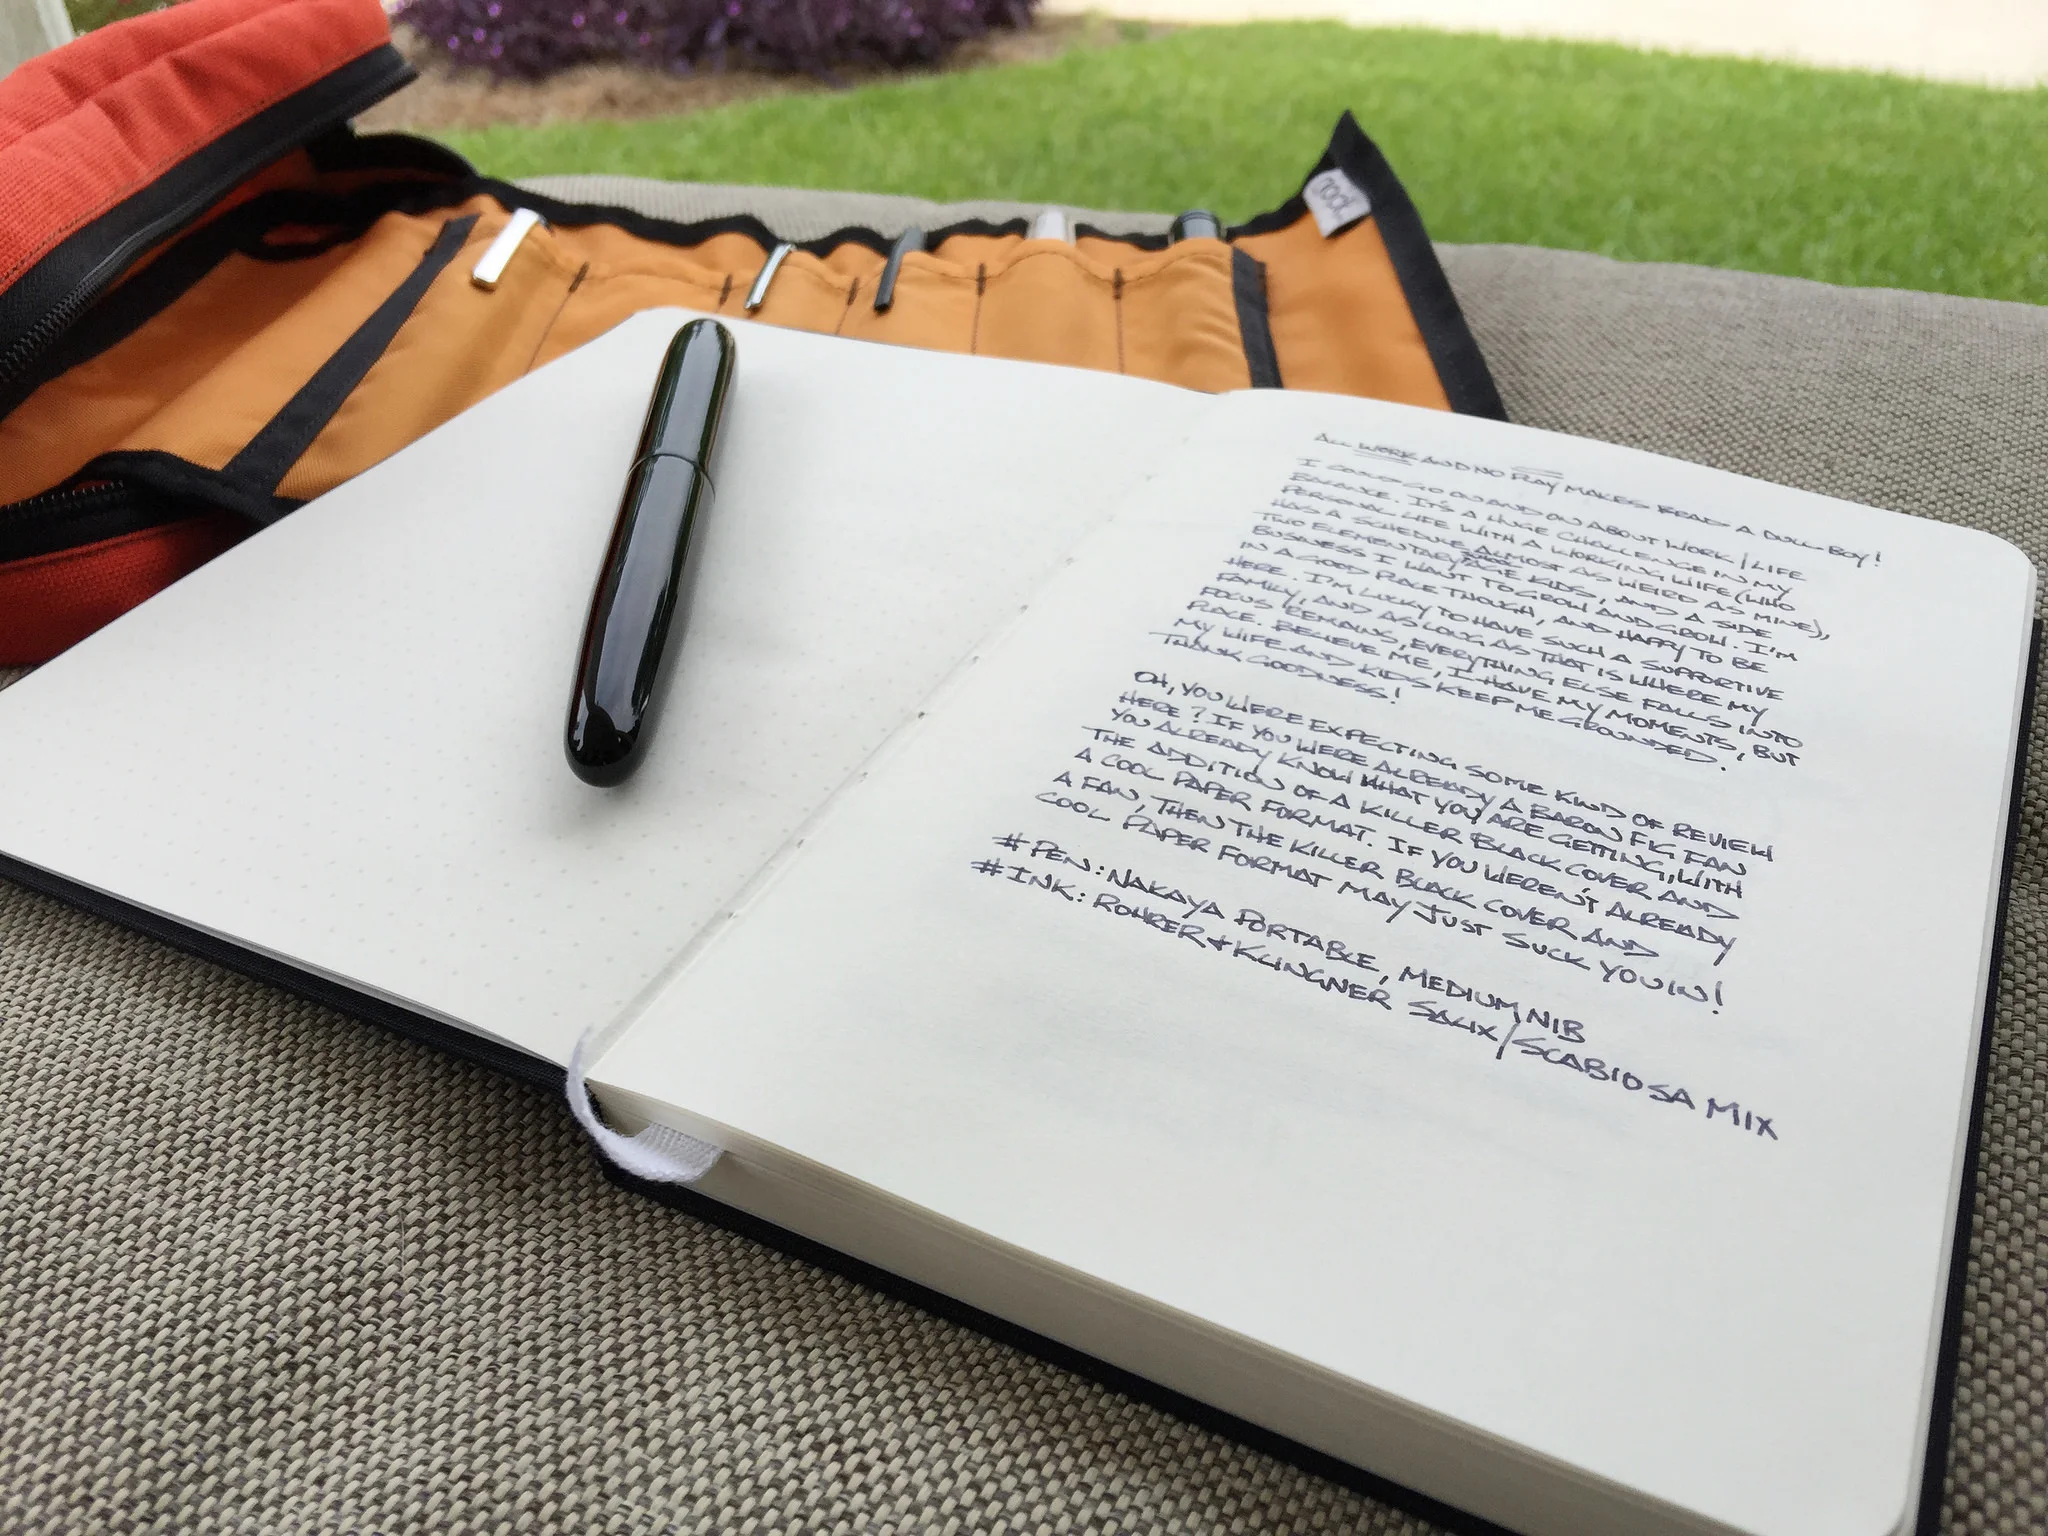 nock
ALL WORK AND NO PLAY MAKES BRAD A DULL BOY!
I COULD GO ON AND ON ABOUT WORK/LIFE
BALANCE. IT'S A HUGE CHALLENGE IN MY
PERSONAL LIFE WITH A WORKING WIFE (WHO
HAS A SCHEDULE ALMOST AS WEIRD AS MINE),
TWO ELEMENTARY AGE KIDS, AND A SIDE
BUSINESS I WANT TO GROW AND GROW. I'M
IN A GOOD PLACE THOUGH, AND HAPPY TO BE
HERE. I'M LUCKY TO HAVE SUCH A SUPPORTIVE
FAMILY, AND AS LONG AS THAT IS WHERE MY
FOCUS REMAINS, EVERYTHING ELSE FALLS INTO
PLACE. BELIEVE ME, I HAVE MY MOMENTS, BUT
MY WIFE AND KIDS KEEP ME GROUNDED.
THANK GOODNESS!
OH, YOU WERE EXPECTING SOME KIND OF REVIEW
HERE? IF YOU WERE ALREADY A BARON FIG FAN
YOU ALREADY KNOW WHAT YOU ARE GETTING, WITH
THE ADDITION OF A KILLER BLACK COVER AND
A COOL PAPER FORMAT. IF YOU WEREN'T ALREADY
A FAN, THEN THE KILLER BLACK COVER AND
COOL PAPER FORMAT MAY JUST SUCK YOU IN!
#PEN: NAKAYA PORTABLE, MEDIUM NIB
#INK: ROHRER & KLINGNER SALIX/SCABIOSA MIX